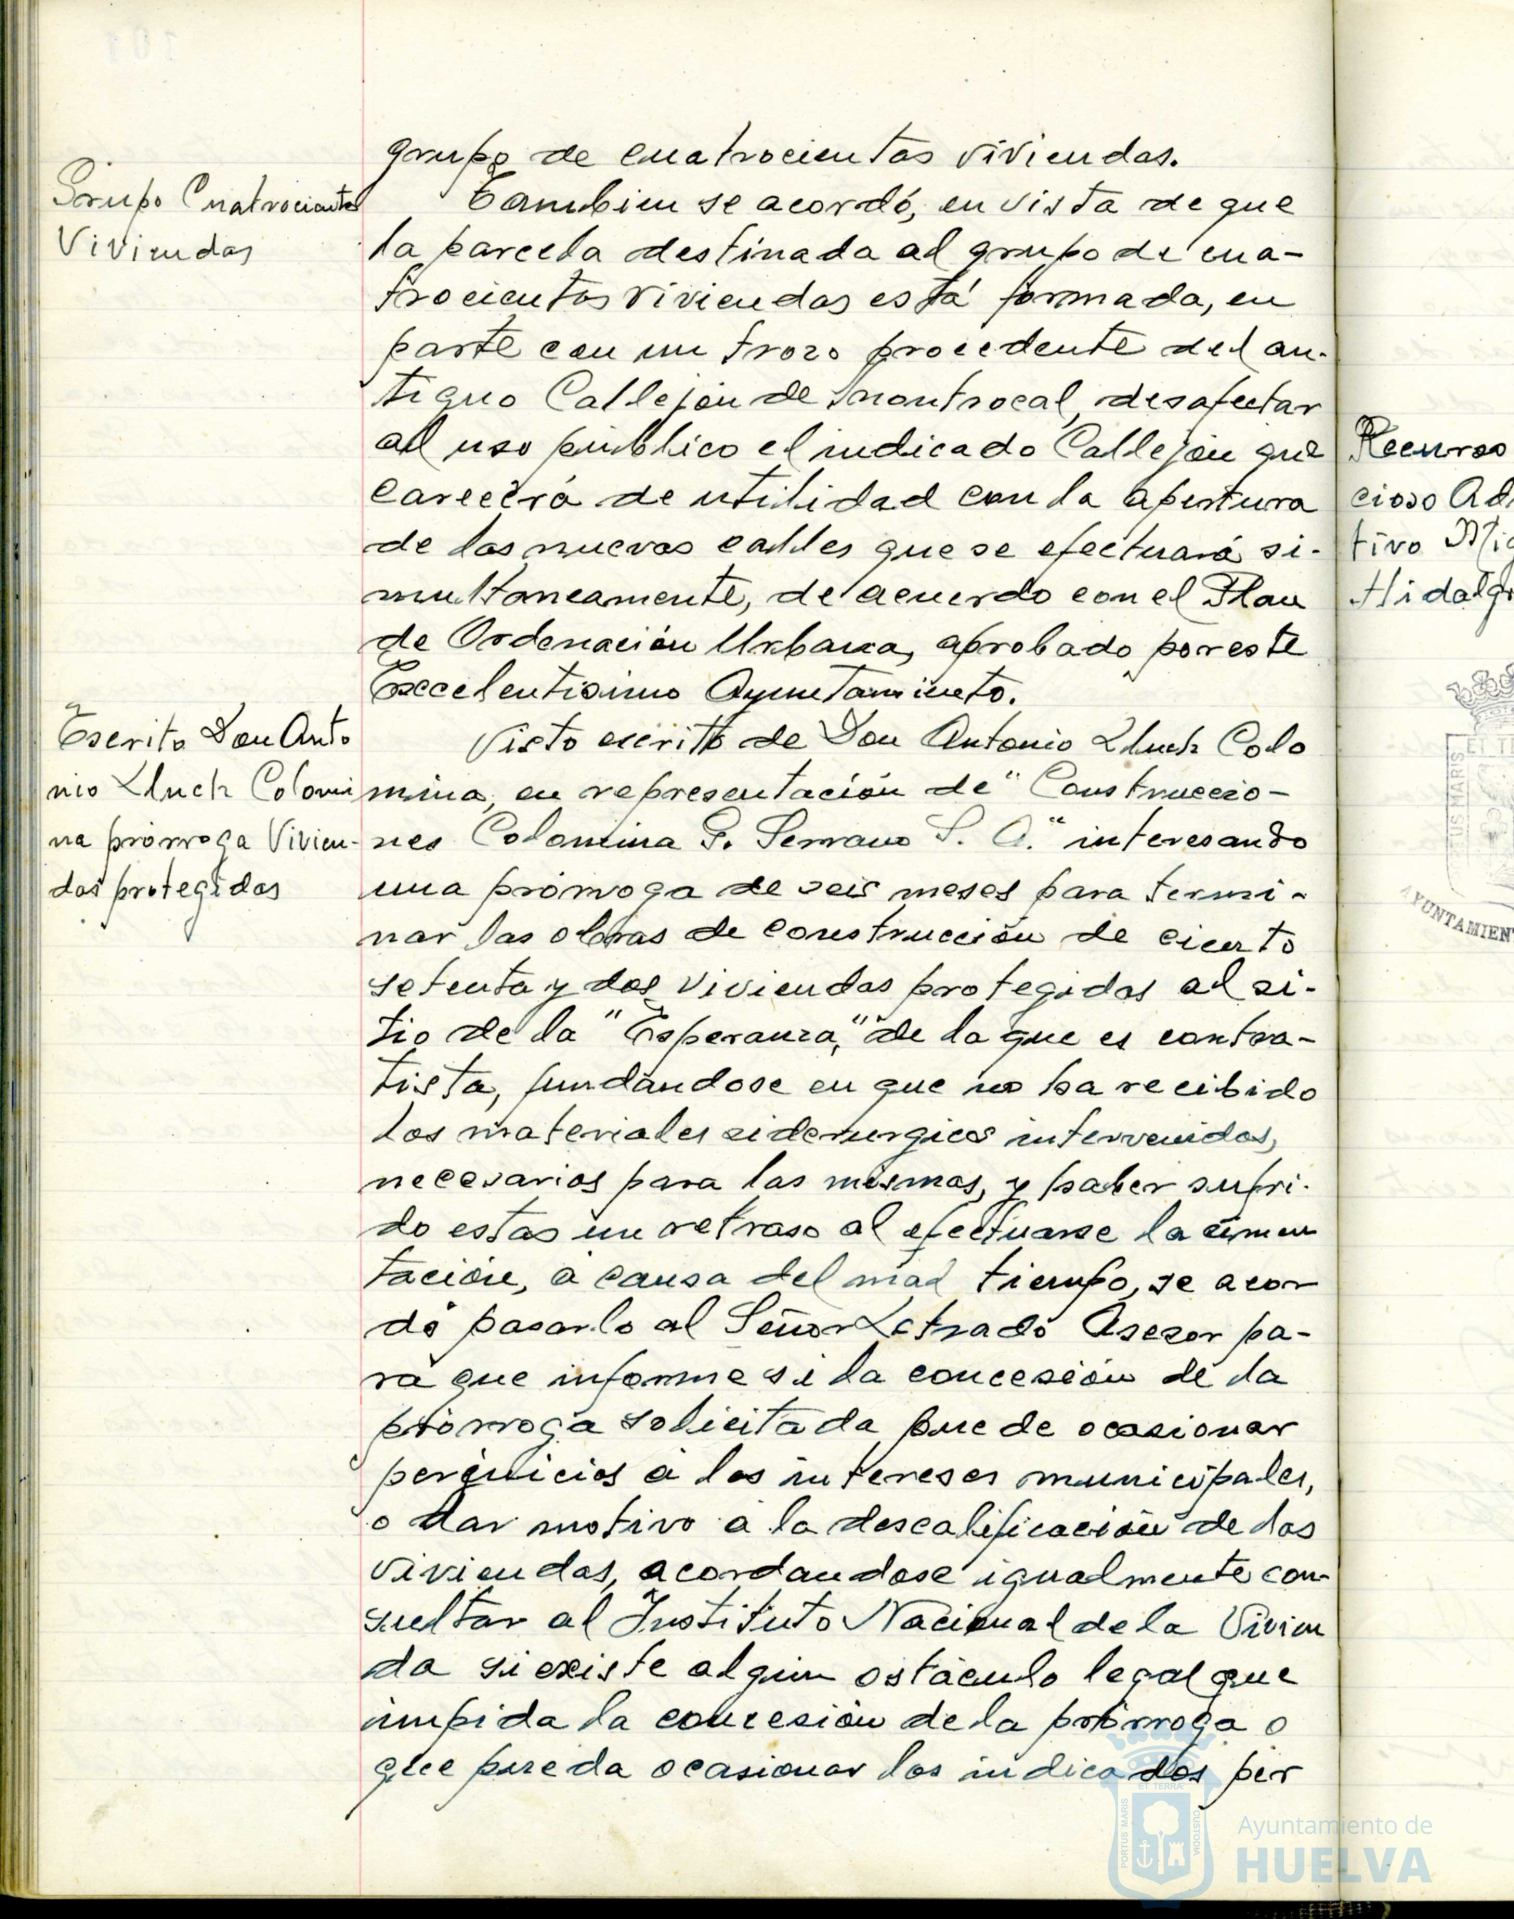 grupo de cuatrocientas viviendas.
Grupo Cuatrocientas
Viviendas
Tambien se acordó, en vista de que
la parcela destinada al grupo de cua-
trocientas viviendas está formada, en
parte con un trozo procedente del an-
tiguo Callejón de Montrocal, desafectar
al uso público el indicado Callejón que
carecerá de utilidad con la apertura
de las nuevas calles que se efectuará si-
multaneamente, de acuerdo con el Plan
de Ordenación Urbana, aprobado por este
Excelentisimo Ayuntamiento.
Escrito Don Anto
nio Lluch Colomi
na prórroga Vivien-
das protegidas
Visto escrito de Don Antonio Lluch Colo
mina, en representación de "Construccio-
nes Colomina G. Serrano S. A." interesando
una prórroga de seis meses para termi-
nar las obras de construcción de ciento
setenta y dos viviendas protegidas al si-
tio de la "Esperanza," de la que es contra-
tista, fundándose en que no ha recibido
los materiales siderurgicos intervenidos,
necesarios para las mismas, y haber sufri-
do estas un retraso al efectuarse la cimen
tación, á causa del mal tiempo, se acor
dó pasarlo al Señor Letrado Asesor pa-
ra que informe si la concesión de la
prórroga solicitada puede ocasionar
perjuicios á los intereses municipales,
o dar motivo á la descalificación de las
viviendas, acordandose igualmente con-
sultar al Instituto Nacional de la Vivien
da si existe algún ostáculo legal que
impida la concesión de la prórroga o
que pueda ocasionar los indicados per
Recurso
cioso Ad
tivo Mig
Hidalgo
US MARIS
ET TE
AYUNTAMIEN
PORTUS MARIS
ET TERRA
CUSTODIA
Ayuntamiento de
HUELVA